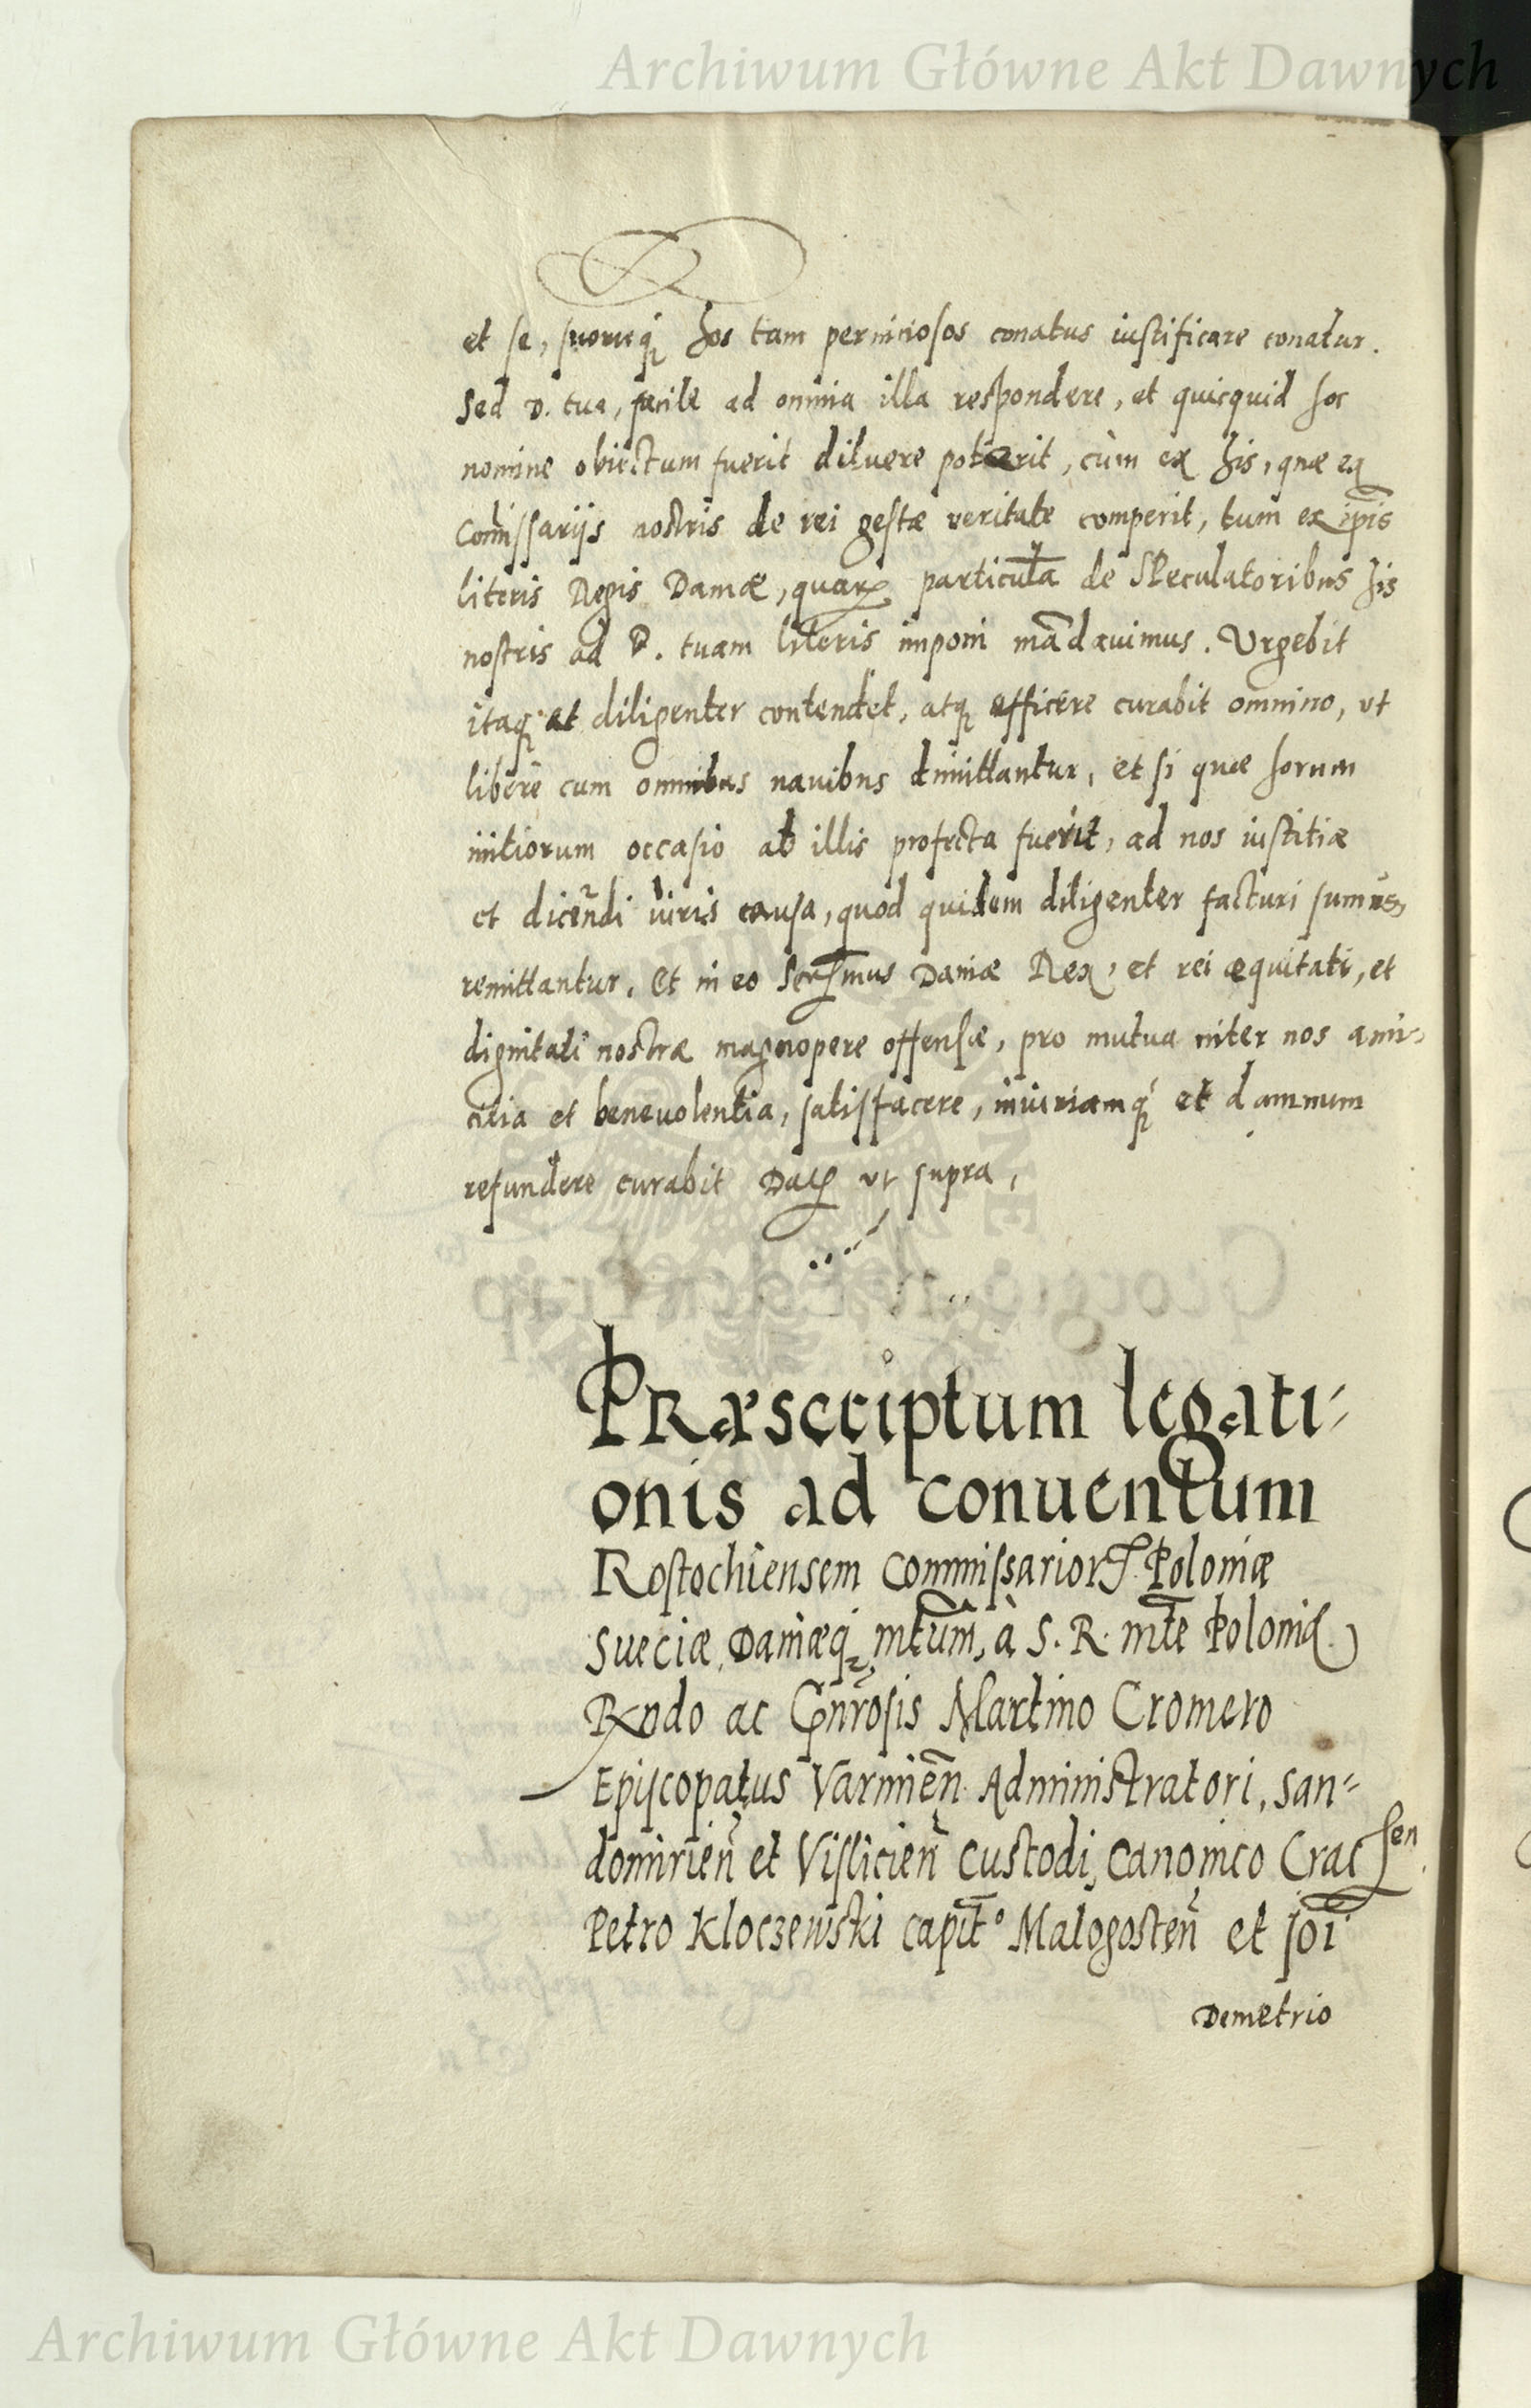 Archiwum Główne Akt Dawnych
et se, suorumq́ hos tam perniciosos conatus iustificare conatur.
Sed D. tua, facile ad omnia illa respondere, et quicquid hoc
nomine obiectum fuerit diluere poterit, cùm ex his, quæ ex
Comissarijs nostris de rei gestæ veritate comperit, tum ex ip̄is
literis Regis Daniæ, quarꝝ particula de Speculatoribus his
nostris ad D. tuam literis imponi mādauimus. Vrgebit
itaq et diligenter contendet, atq efficere curabit omnino, vt
liberè cum omnibus nauibus dimittantur, et si quæ horum
initiorum occasio ab illis profecta fuerit, ad nos iustitiæ
et dicendi iuris causa, quod quidem diligenter facturi sumus,
remittantur. Et in eo Serēmus Daniæ Rex, et rei æquitati, et
dignitati nostræ magnopere offensæ, pro mutua inter nos ami-
citia et beneuolentia, satisfacere, iniuriamq́ et damnum
refundere curabit Datꝭ vt supra,
Præscriptum legati-
onis ad conuentum
Rostochiensem Commissariorꝝ Poloniæ
Sueciæ, Daniæq́, m̄tum, à S. R. m̄te Poloniæ
Rx̄ndo ac Gnr̄osis Martino Cromero
Episcopatus Varmien̄ Administratori, San-
domirien̄ et Vislicien̄ Custodi, Canonico Crac sen.
Petro Kloczewski Capit̄o Malogosten̄ et Joī
Demetrio
Archiwum Główne Akt Dawnych